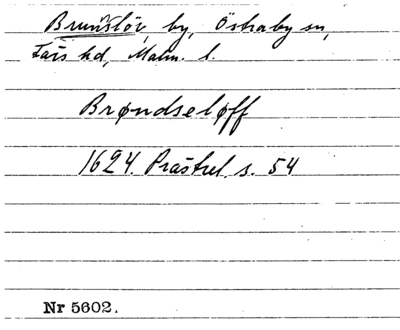 Brunslöv, by, Östraby sn,
Färs hd, Malm. l.
Brøndseløff
1624. Prästrel. s. 54
Nr 5602.